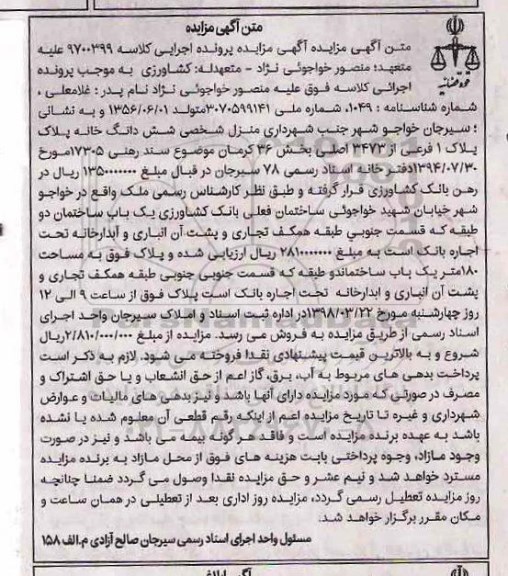 متن آگهی مزایده
متن آگهی مزایده آگهی مزایده پرونده اجرایی کلاسه ۹۷۰۰۳۹۹ علیه
متعهد؛ منصور خواجوئی نژاد - متعهدله: کشاورزی به موجب پرونده
اجرائی کلاسه فوق علیه منصور خواجوئی نژاد نام پدر: غلامعلی ،
شماره شناسنامه : ۱۰۴۹، شماره ملی ۳۰۷۰۵۹۹۱۴۱متولد ۱۳۵۶/۰۶/۰۱ و به نشانی
؛ سیرجان خواجو شهر جنب شهرداری منزل شخصی شش دانگ خانه پلاک
پلاک ۱ فرعی از ۳۴۷۳ اصلی بخش ۳۶ کرمان موضوع سند رهنی ۱۷۳۰۵مورخ
۱۳۹۴/۰۷/۳۰دفتر خانه اسناد رسمی ۷۸ سیرجان در قبال مبلغ ۱۳۵۰۰۰۰۰۰۰ ریال در
رهن بانک کشاورزی قرار گرفته و طبق نظر کارشناس رسمی ملک واقع در خواجو
شهر خیابان شهید خواجوئی ساختمان فعلی بانک کشاورزی یک باب ساختمان دو
طبقه که قسمت جنوبی طبقه همکف تجاری و پشت آن انباری و آبدارخانه تحت
اجاره بانک است به مبلغ ۲۸۱۰۰۰۰۰۰۰ ریال ارزیابی شده و پلاک فوق به مساحت
۱۸۰متر یک باب ساختماندو طبقه که قسمت جنوبی جنوبی طبقه همکف تجاری و
پشت آن انباری و ابدارخانه تحت اجاره بانک است پلاک فوق از ساعت ۹ الی ۱۲
روز چهارشنبه مورخ ۱۳۹۸/۰۳/۲۲در اداره ثبت اسناد و املاک سیرجان واحد اجرای
اسناد رسمی از طریق مزایده به فروش می رسد. مزایده از مبلغ ۲/۸۱۰/۰۰۰/۰۰۰ریال
شروع و به بالاترین قیمت پیشنهادی نقدا فروخته می شود. لازم به ذکر است
پرداخت بدهی های مربوط به آب، برق، گاز اعم از حق انشعاب و یا حق اشتراک و
مصرف در صورتی که مورد مزایده دارای آنها باشد و نیز بدهی های مالیات و عوارض
شهرداری و غیره تا تاریخ مزایده اعم از اینکه رقم قطعی آن معلوم شده یا نشده
باشد به عهده برنده مزایده است و فاقد هر گونه بیمه می باشد و نیز در صورت
وجود مازاد، وجوه پرداختی بابت هزینه های فوق از محل مازاد به برنده مزایده
مسترد خواهد شد و نیم عشر و حق مزایده نقدا وصول می گردد ضمنا چنانچه
روز مزایده تعطیل رسمی گردد، مزایده روز اداری بعد از تعطیلی در همان ساعت و
مکان مقرر برگزار خواهد شد.
مسئول واحد اجرای اسناد رسمی سیرجان صالح آزادی م.الف ۱۵۸